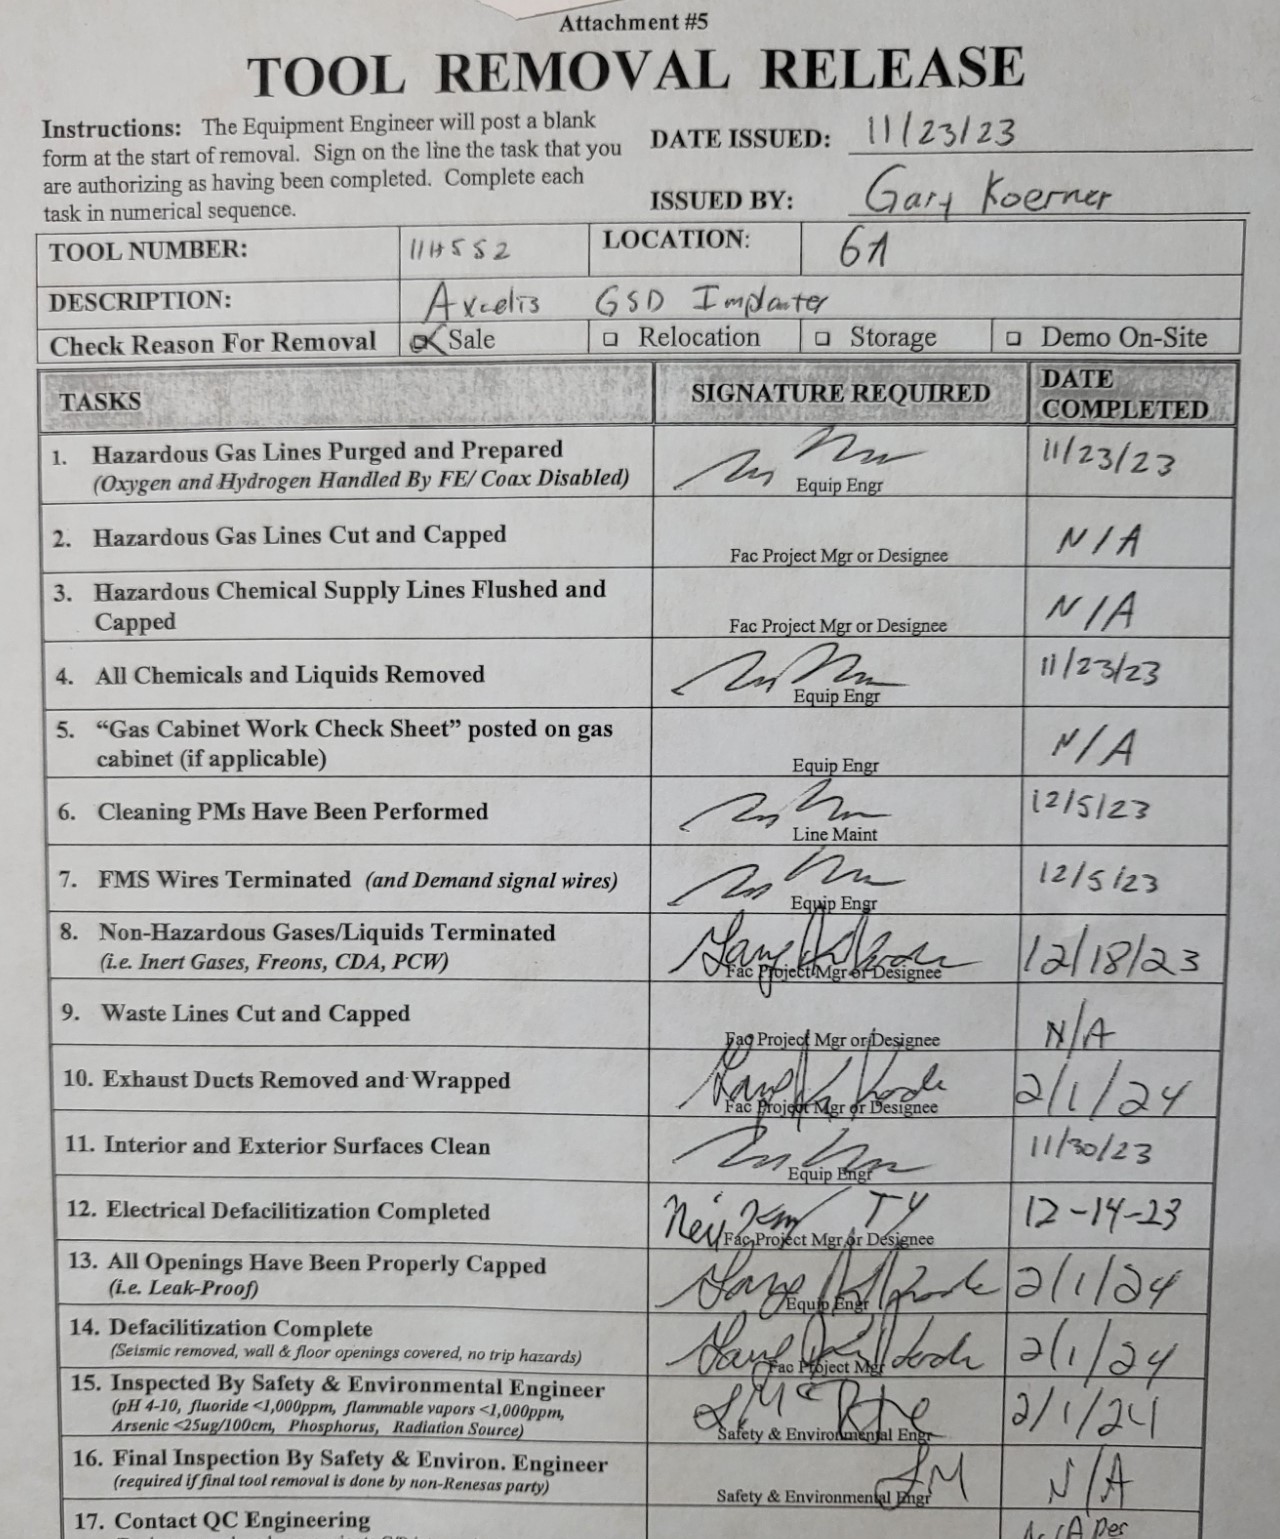 Attachment #5
TOOL REMOVAL RELEASE
Instructions: The Equipment Engineer will post a blank
form at the start of removal. Sign on the line the task that you
are authorizing as having been completed. Complete each
task in numerical sequence.
DATE ISSUED: 11/23/23
ISSUED BY: Gary Koerner
TOOL NUMBER: 11H552 LOCATION: 6A
DESCRIPTION: Axcelis GSD Implanter
Check Reason For Removal Sale Relocation Storage Demo On-Site
TASKS SIGNATURE REQUIRED DATE COMPLETED
1. Hazardous Gas Lines Purged and Prepared 11/23/23
(Oxygen and Hydrogen Handled By FE/ Coax Disabled) Equip Engr
2. Hazardous Gas Lines Cut and Capped N/A
Fac Project Mgr or Designee
3. Hazardous Chemical Supply Lines Flushed and
Capped N/A
Fac Project Mgr or Designee
4. All Chemicals and Liquids Removed 11/23/23
Equip Engr
5. “Gas Cabinet Work Check Sheet” posted on gas
cabinet (if applicable) N/A
Equip Engr
6. Cleaning PMs Have Been Performed 12/5/23
Line Maint
7. FMS Wires Terminated (and Demand signal wires) 12/5/23
Equip Engr
8. Non-Hazardous Gases/Liquids Terminated 12/18/23
(i.e. Inert Gases, Freons, CDA, PCW) Fac Project Mgr or Designee
9. Waste Lines Cut and Capped N/A
Fac Project Mgr or Designee
10. Exhaust Ducts Removed and Wrapped 2/1/24
Fac Project Mgr or Designee
11. Interior and Exterior Surfaces Clean 11/30/23
Equip Engr
12. Electrical Defacilitization Completed 12-14-23
Fac Project Mgr or Designee
13. All Openings Have Been Properly Capped 2/1/24
(i.e. Leak-Proof) Equip Engr
14. Defacilitization Complete 2/1/24
(Seismic removed, wall & floor openings covered, no trip hazards) Fac Project Mgr
15. Inspected By Safety & Environmental Engineer 2/1/24
(pH 4-10, fluoride <1,000ppm, flammable vapors <1,000ppm,
Arsenic <25ug/100cm, Phosphorus, Radiation Source) Safety & Environmental Engr
16. Final Inspection By Safety & Environ. Engineer N/A
(required if final tool removal is done by non-Renesas party) Safety & Environmental Engr
17. Contact QC Engineering